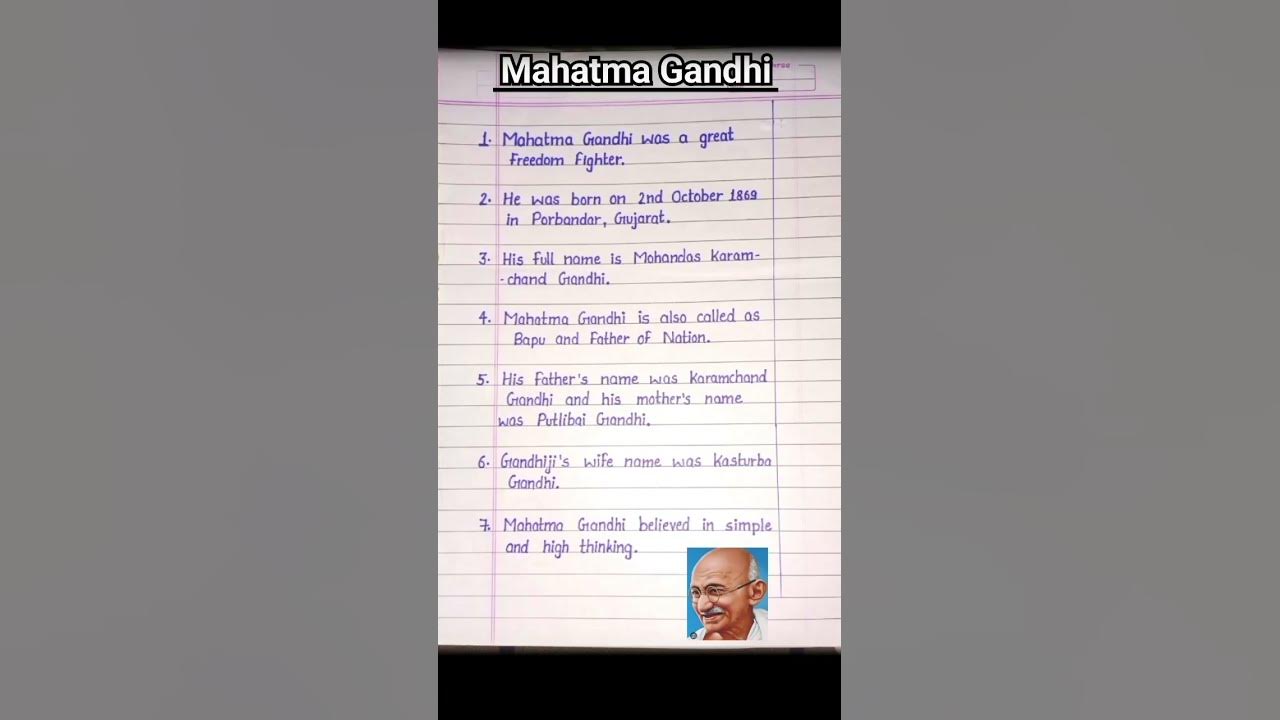 Mahatma Gandhi
1. Mahatma Gandhi was a great
freedom fighter.
2. He was born on 2nd October 1869
in Porbandar, Gujarat.
3. His full name is Mohandas Karam-
-chand Gandhi.
4. Mahatma Gandhi is also called as
Bapu and Father of Nation.
5. His father's name was Karamchand
Gandhi and his mother's name
was Putlibai Gandhi.
6. Gandhiji's wife name was Kasturba
Gandhi.
7. Mahatma Gandhi believed in simple
and high thinking.